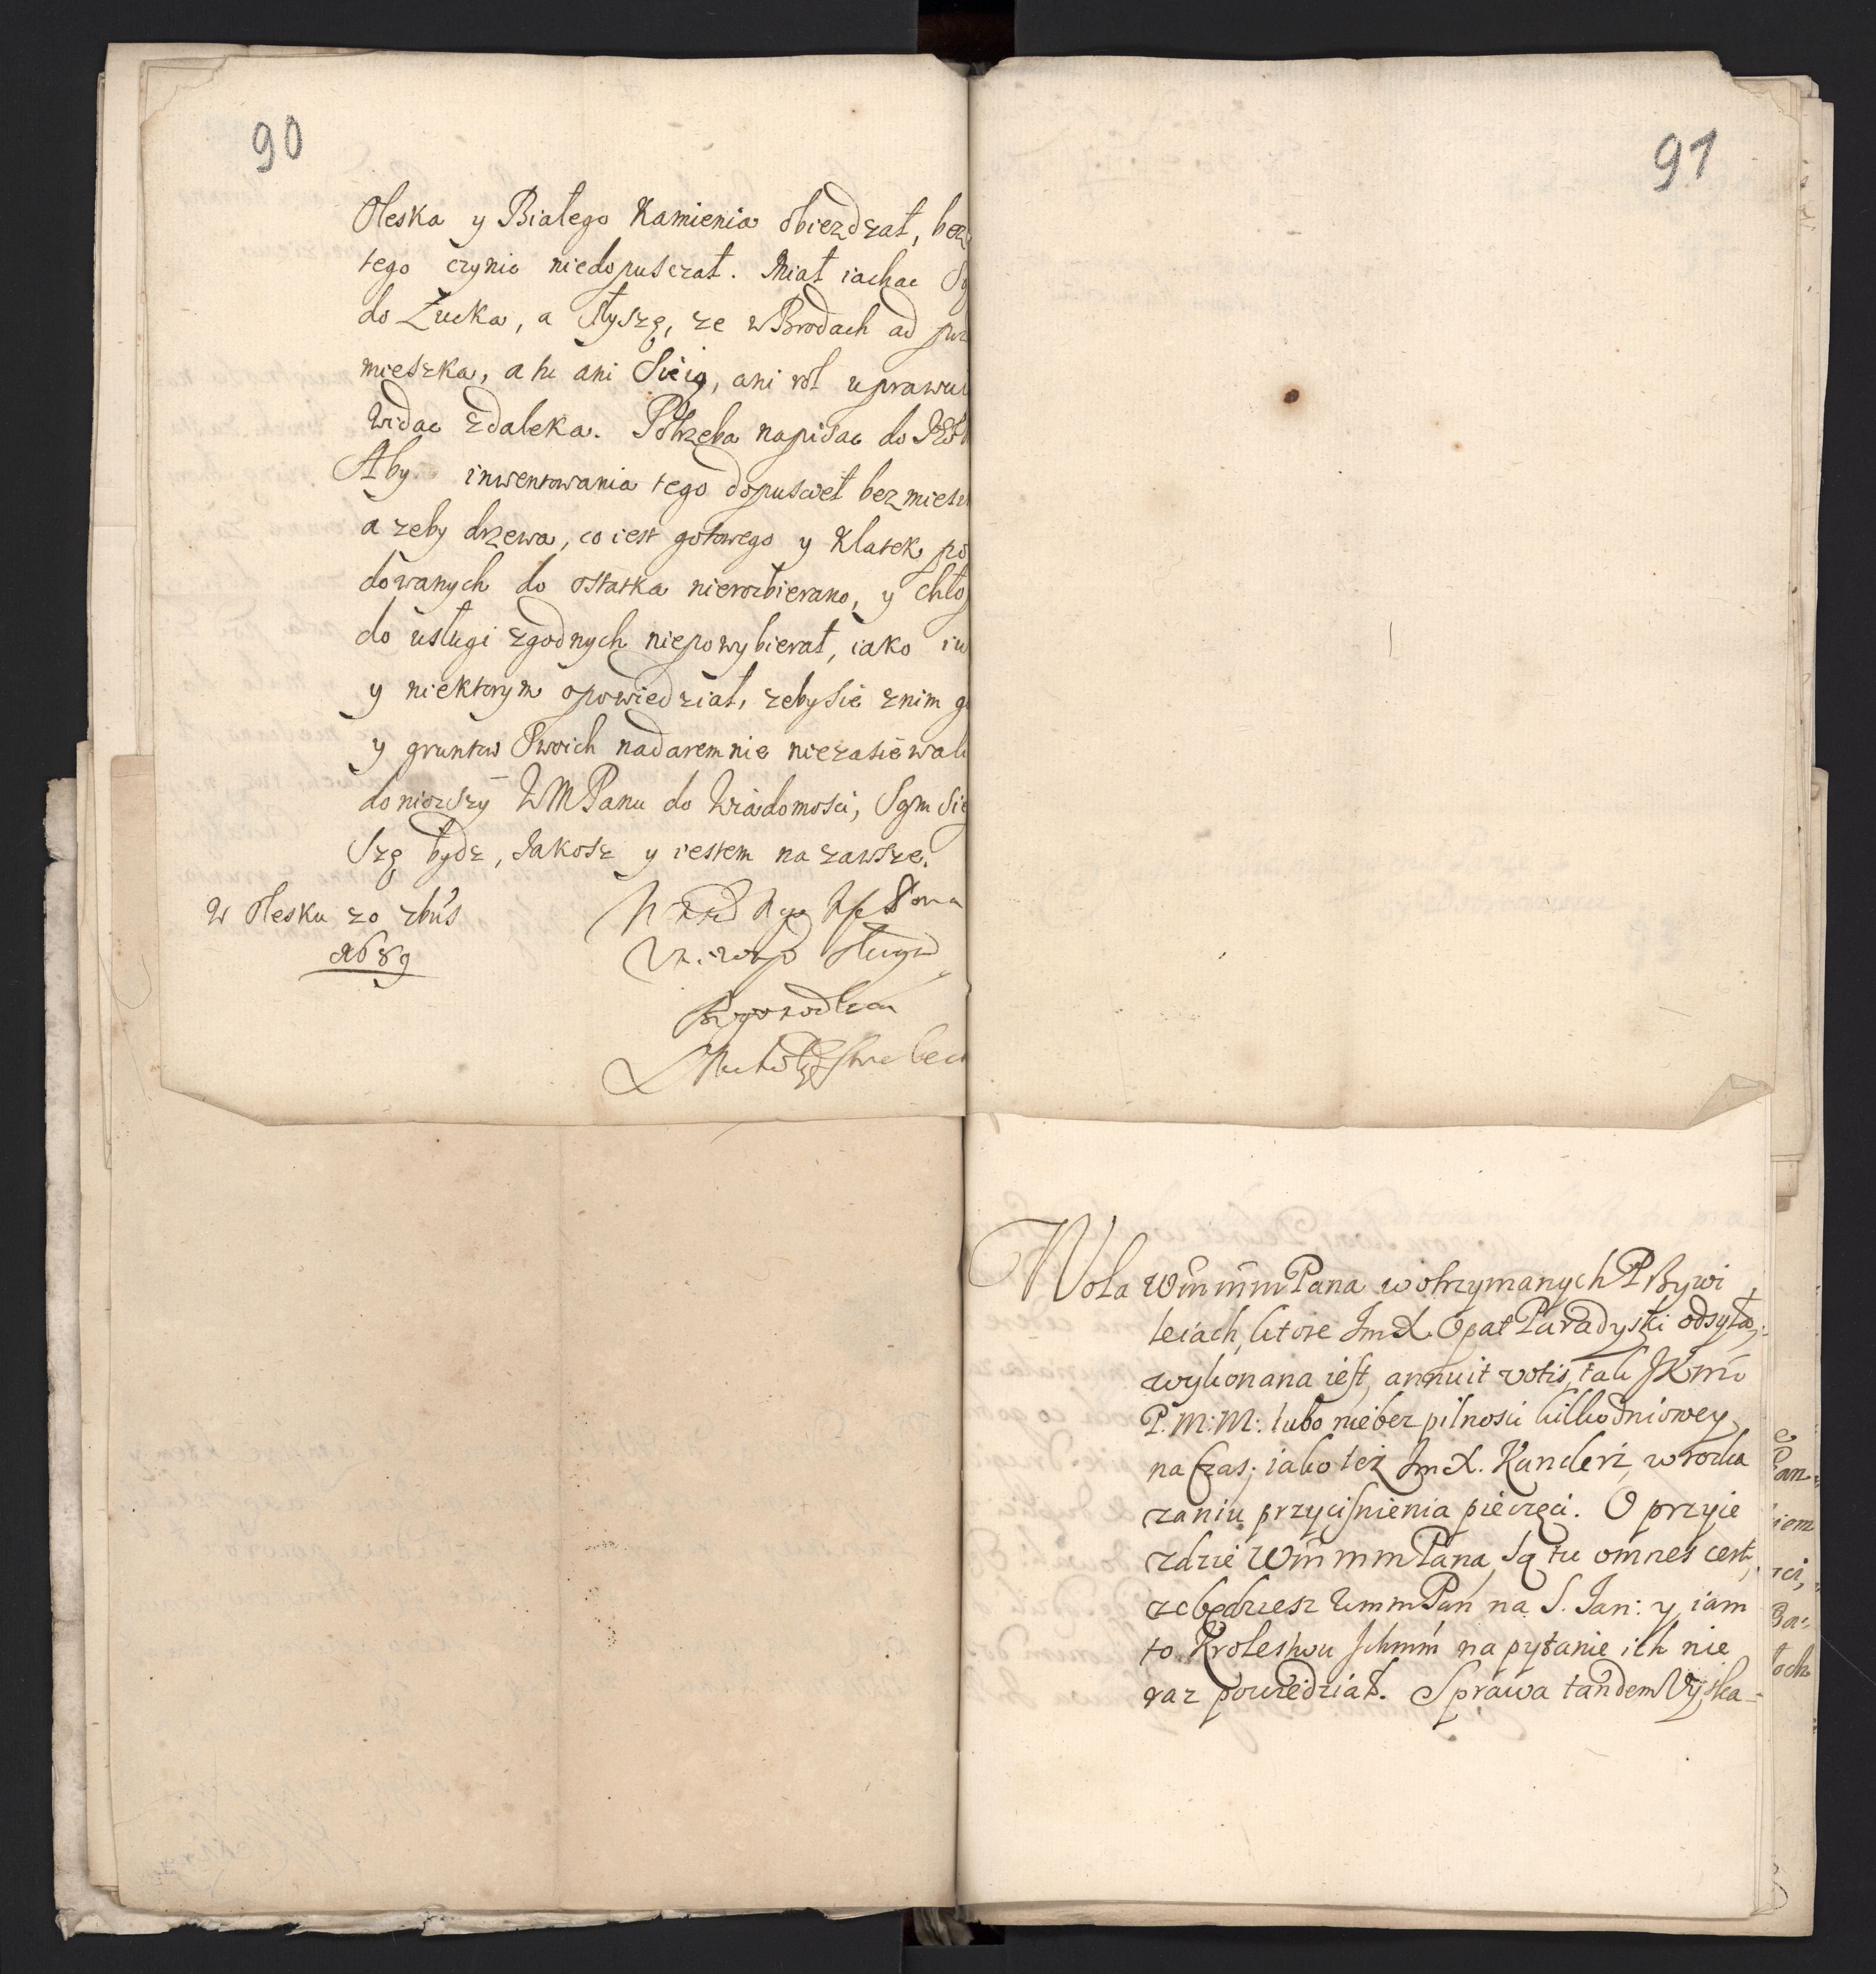 90
Oleska y Białego Kamienia obiezdzał, bez
tego czynic niedopusczał. Miał iachac
do Łucka, a słyszę, ze w Brodach ad
mieszka, a tu ani Sieią, ani rol uprawui
Widac zdaleka. Potrzeba napisac do
Aby inwentowania tego dopuscieł bez miesz
a zeby drzewa, co iest gotowego y Klatek po
dowanych do ostatka nierozbierano, y chło
do usługi zgodnych niepowybierał, iako iu
y niektorym opowiedział, zeby sie znim g
y gruntow Swoich nadaremnie niezasiewali
doniozszy WMPanu do Wiadomosci, Sam Sie
Szę bydz, Jakosz y iestem na zawsze.
W Olesku 20 zbris
1689
sługa
91
Wola WmmmPana wotrzymanych Przywi
leiach, ktore JmX. Opat Paradyski odsyła,
wykonana iest, annuit votis tak JKmć
P. M: M: lubo niebez pilnosci kilkodniowey
na czas, iako też JmX. Kanclerz, w rozka
zaniu przycisnienia pieczęci. O przyie
zdzie WmmmPana, są tu omnes certi,
ze będziesz WmmPan na S. Jan: y iam
to Krolestwu Ichmm na pytanie ich nie
raz powiedział. Sprawa tandem Uyska-